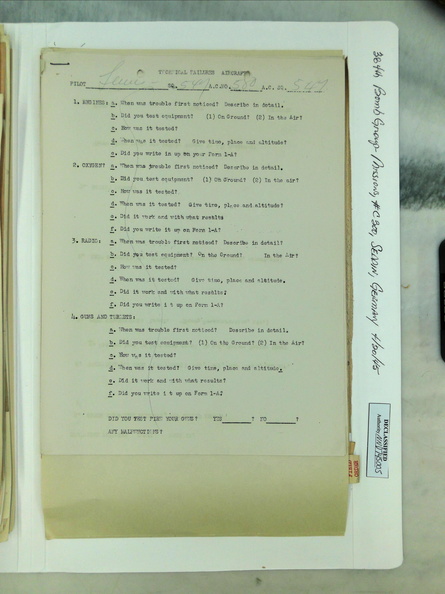 TECHNICAL FAILURES AIRCRAFT
PILOT Lewis NO. 547 A.C.NO. 588 A.C. SQ. 547
1. ENGINES: a. When was trouble first noticed? Describe in detail.
b. Did you test equipment? (1) On Ground? (2) In the Air?
c. How was it tested?
d. When was it tested? Give time, place and altitude?
e. Did you write in up on your Form 1-A?
2. OXYGEN? a. When was trouble first noticed? Describe in detail.
b. Did you test equipment? (1) On Ground? (2) In the Air?
c. How was it tested?
d. When was it tested? Give time, place and altitude?
e. Did it work and with what results
f. Did you write it up on Form 1-A?
3. RADIO: a. When was trouble first noticed? Describe in detail?
b. Did you test equipment? On the Ground? In the Air?
c. How was it tested?
d. When was it tested? Give time, place and altitude.
e. Did it work and with what results?
f. Did you write it up on Form 1-A?
4. GUNS AND TURRETS:
a. When was trouble first noticed? Describe in detail.
b. Did you test equipment? (1) On the Ground? (2) In the Air?
c. How was it tested?
d. When was it tested? Give time, place and altitude.
e. Did it work and with what results?
f. Did you write it up on Form 1-A?
DID YOU TEST FIRE YOUR GUNS? YES ? NO ?
ANY MALFUNCTIONS?
384th Bomb Group Mission, #C300, Germany
DECLASSIFIED
Authority